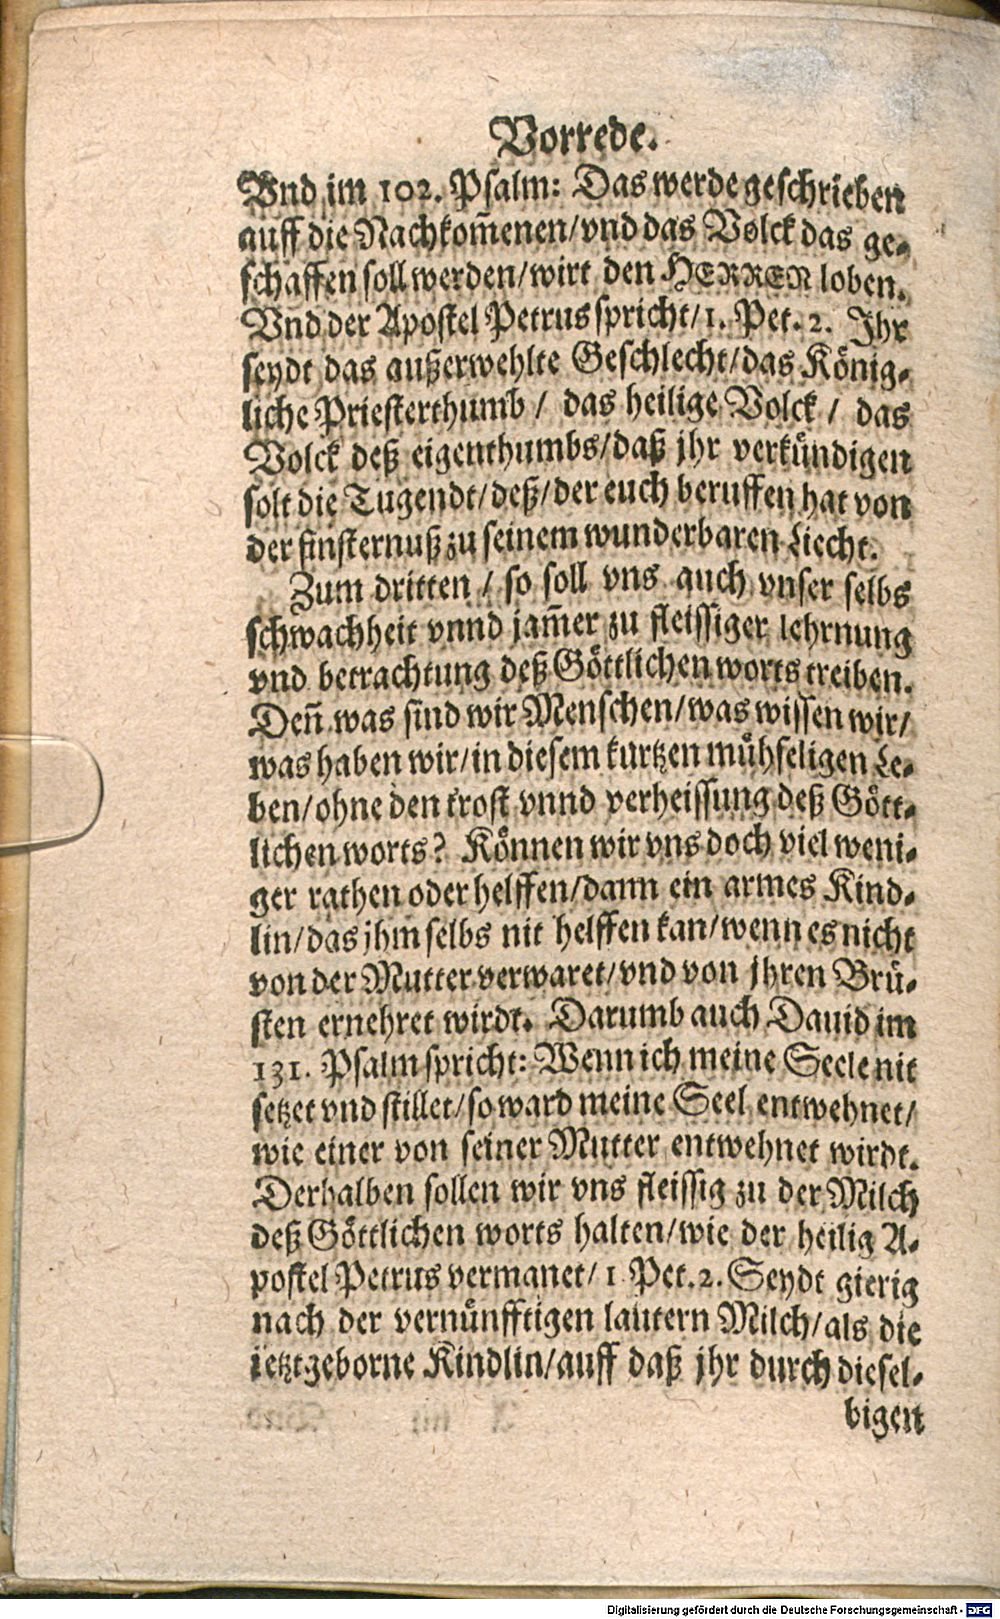 Vorrede.
Vnd im 102. Psalm: Das werde geschrieben
auff die Nachkom̃enen/vnd das Volck das ge-
schaffen soll werden/wirt den HERREN loben.
Vnd der Apostel Petrus spricht/1. Pet. 2. Ihr
seydt das außerwehlte Geschlecht/das König-
liche Priesterthumb / das heilige Volck / das
Volck deß eigenthumbs/daß jhr verkündigen
solt die Tugendt/deß/der euch beruffen hat von
der finsternuß zu seinem wunderbaren Liecht.
Zum dritten / so soll vns auch vnser selbs
schwachheit vnnd jam̃er zu fleissiger lehrnung
vnd betrachtung deß Göttlichen worts treiben.
Den̄ was sind wir Menschen/was wissen wir/
was haben wir/in diesem kurtzen mühseligen Le-
ben/ohne den trost vnnd verheissung deß Gött-
lichen worts? Können wir vns doch viel weni-
ger rathen oder helffen/dann ein armes Kind-
lin/das jhm selbs nit helffen kan/wenn es nicht
von der Mutter verwaret/vnd von jhren Brü-
sten ernehret wirdt. Darumb auch Dauid im
131. Psalm spricht: Wenn ich meine Seele nit
setzet vnd stillet/so ward meine Seel entwehnet/
wie einer von seiner Mutter entwehnet wirdt.
Derhalben sollen wir vns fleissig zu der Milch
deß Göttlichen worts halten/wie der heilig A-
postel Petrus vermanet/1 Pet.2. Seydt gierig
nach der vernünfftigen lautern Milch/als die
jetztgeborne Kindlin/auff daß jhr durch diesel-
bigen
Digitalisierung gefördert durch die Deutsche Forschungsgemeinschaft - DFG